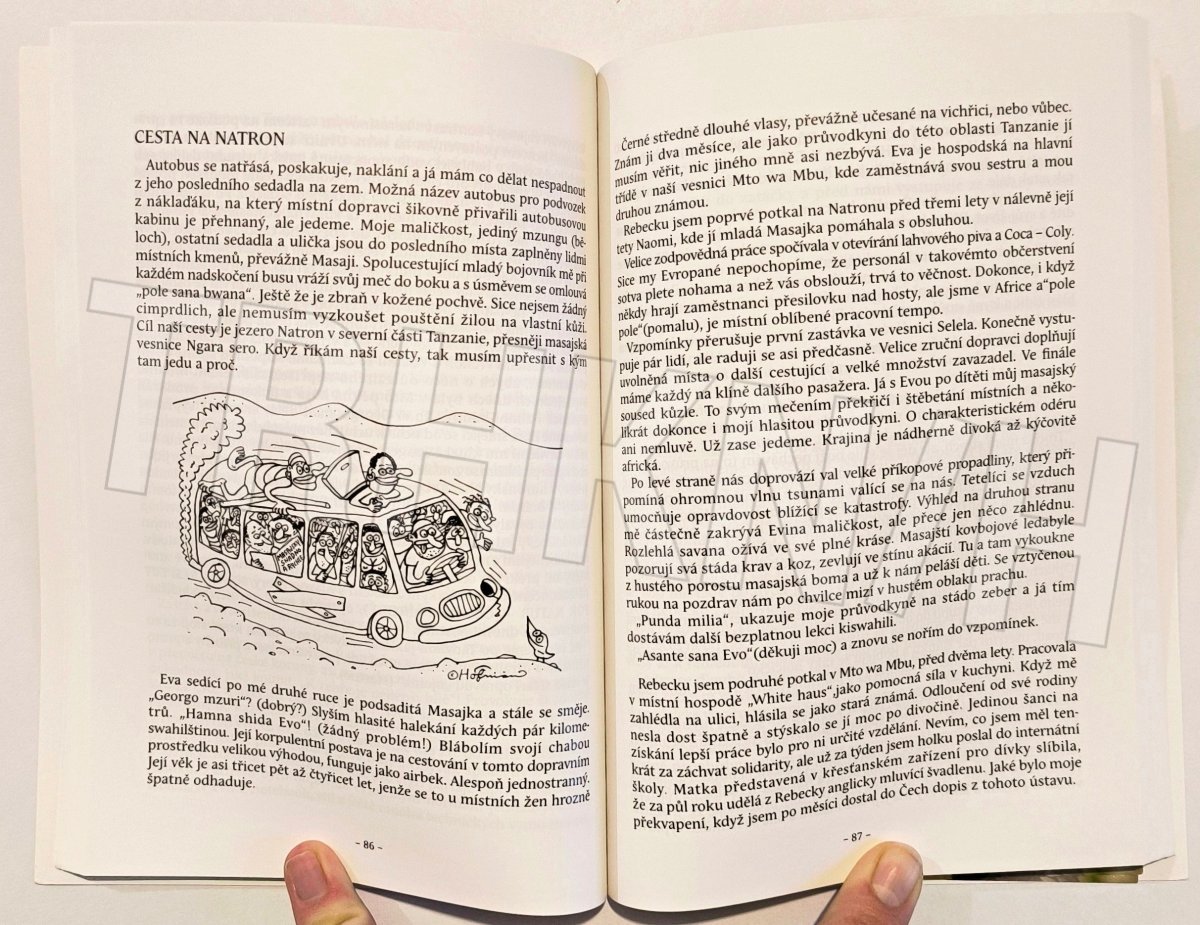 CESTA NA NATRON
Autobus se natřásá, poskakuje, naklání a já mám co dělat nespadnout
z jeho posledního sedadla na zem. Možná název autobus pro podvozek
z náklaďáku, na který místní dopravci šikovně přivařili autobusovou
kabinu je přehnaný, ale jedeme. Moje maličkost, jediný mzungu (bě-
loch), ostatní sedadla a ulička jsou do posledního místa zaplněny lidmi
místních kmenů, převážně Masaji. Spolucestující mladý bojovník mě při
každém nadskočení busu vráží svůj meč do boku a s úsměvem se omlouvá
„pole sana bwana“. Ještě že je zbraň v kožené pochvě. Sice nejsem žádný
cimprdlich, ale nemusím vyzkoušet pouštění žilou na vlastní kůži.
Cíl naší cesty je jezero Natron v severní části Tanzanie, přesněji masajská
vesnice Ngara sero. Když říkám naší cesty, tak musím upřesnit s kým
tam jedu a proč.
Eva sedící po mé druhé ruce je podsaditá Masajka a stále se směje.
„Georgo mzuri“? (dobrý?) Slyším hlasité halekání každých pár kilome-
trů. „Hamna shida Evo“! (žádný problém!) Blábolím svojí chabou
swahilštinou. Její korpulentní postava je na cestování v tomto dopravním
prostředku velikou výhodou, funguje jako airbek. Alespoň jednostranný.
Její věk je asi třicet pět až čtyřicet let, jenže se to u místních žen hrozně
špatně odhaduje.
– 86 –
Černé středně dlouhé vlasy, převážně učesané na vichřici, nebo vůbec.
Znám ji dva měsíce, ale jako průvodkyni do této oblasti Tanzanie jí
musím věřit, nic jiného mně asi nezbývá. Eva je hospodská na hlavní
třídě v naší vesnici Mto wa Mbu, kde zaměstnává svou sestru a mou
druhou známou.
Rebecku jsem poprvé potkal na Natronu před třemi lety v nálevně její
tety Naomi, kde jí mladá Masajka pomáhala s obsluhou.
Velice zodpovědná práce spočívala v otevírání lahvového piva a Coca – Coly.
Sice my Evropané nepochopíme, že personál v takovémto občerstvení
sotva plete nohama a než vás obslouží, trvá to věčnost. Dokonce, i když
někdy hrají zaměstnanci přesilovku nad hosty, ale jsme v Africe a“pole
pole“(pomalu), je místní oblíbené pracovní tempo.
Vzpomínky přerušuje první zastávka ve vesnici Selela. Konečně vystu-
puje pár lidí, ale raduji se asi předčasně. Velice zruční dopravci doplňují
uvolněná místa o další cestující a velké množství zavazadel. Ve finále
máme každý na klíně dalšího pasažera. Já s Evou po dítěti můj masajský
soused kůzle. To svým mečením překřičí i štěbetání místních a něko-
likrát dokonce i mojí hlasitou průvodkyni. O charakteristickém odéru
ani nemluvě. Už zase jedeme. Krajina je nádherně divoká až kýčovitě
africká.
Po levé straně nás doprovází val velké příkopové propadliny, který při-
pomíná ohromnou vlnu tsunami valící se na nás. Tetelící se vzduch
umocňuje opravdovost blížící se katastrofy. Výhled na druhou stranu
mě částečně zakrývá Evina maličkost, ale přece jen něco zahlédnu.
Rozlehlá savana ožívá ve své plné kráse. Masajští kovbojové ledabyle
pozorují svá stáda krav a koz, zevlují ve stínu akácií. Tu a tam vykoukne
z hustého porostu masajská boma a už k nám peláší děti. Se vztyčenou
rukou na pozdrav nám po chvilce mizí v hustém oblaku prachu.
„Punda milia“, ukazuje moje průvodkyně na stádo zeber a já tím
dostávám další bezplatnou lekci kiswahili.
„Asante sana Evo“(děkuji moc) a znovu se nořím do vzpomínek.
Rebecku jsem podruhé potkal v Mto wa Mbu, před dvěma lety. Pracovala
v místní hospodě „White haus“,jako pomocná síla v kuchyni. Když mě
zahlédla na ulici, hlásila se jako stará známá. Odloučení od své rodiny
nesla dost špatně a stýskalo se jí moc po divočině. Jedinou šanci na
získání lepší práce bylo pro ni určité vzdělání. Nevím, co jsem měl ten-
krát za záchvat solidarity, ale už za týden jsem holku poslal do internátní
školy. Matka představená v křesťanském zařízení pro dívky slíbila,
že za půl roku udělá z Rebecky anglicky mluvící švadlenu. Jaké bylo moje
překvapení, když jsem po měsíci dostal do Čech dopis z tohoto ústavu.
– 87 –
TRHKNIH